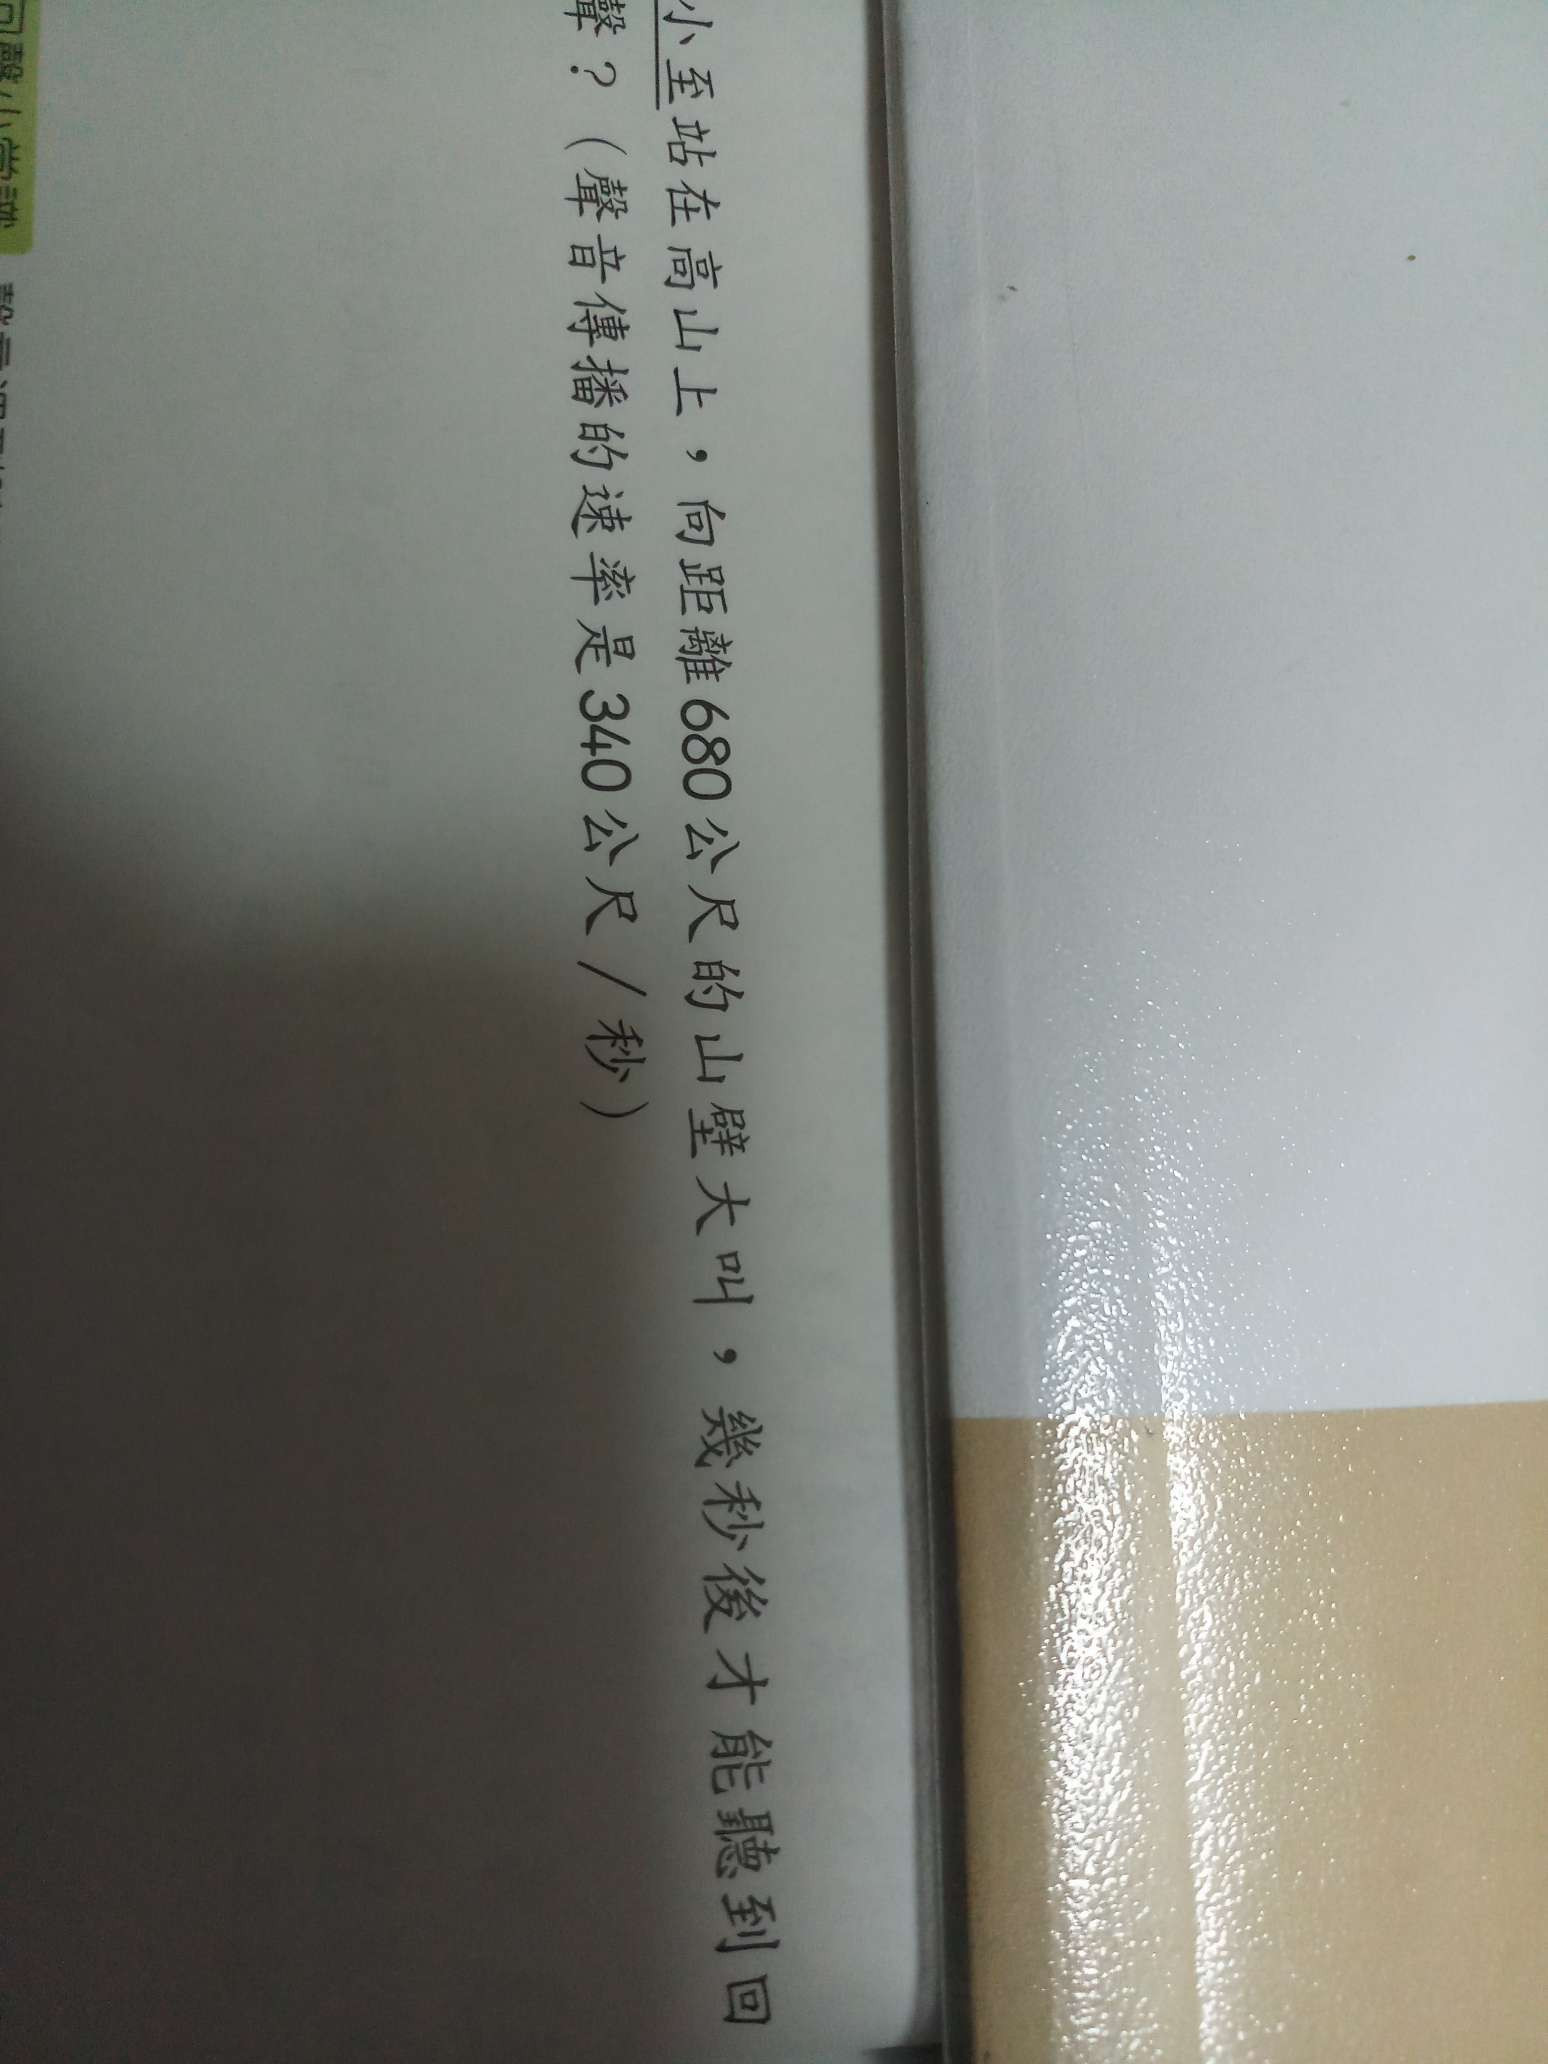 小至站在高山上，向距離680公尺的山壁大叫，幾秒後才能聽到回
聲？（聲音傳播的速率是340公尺/秒）
回聲小常識